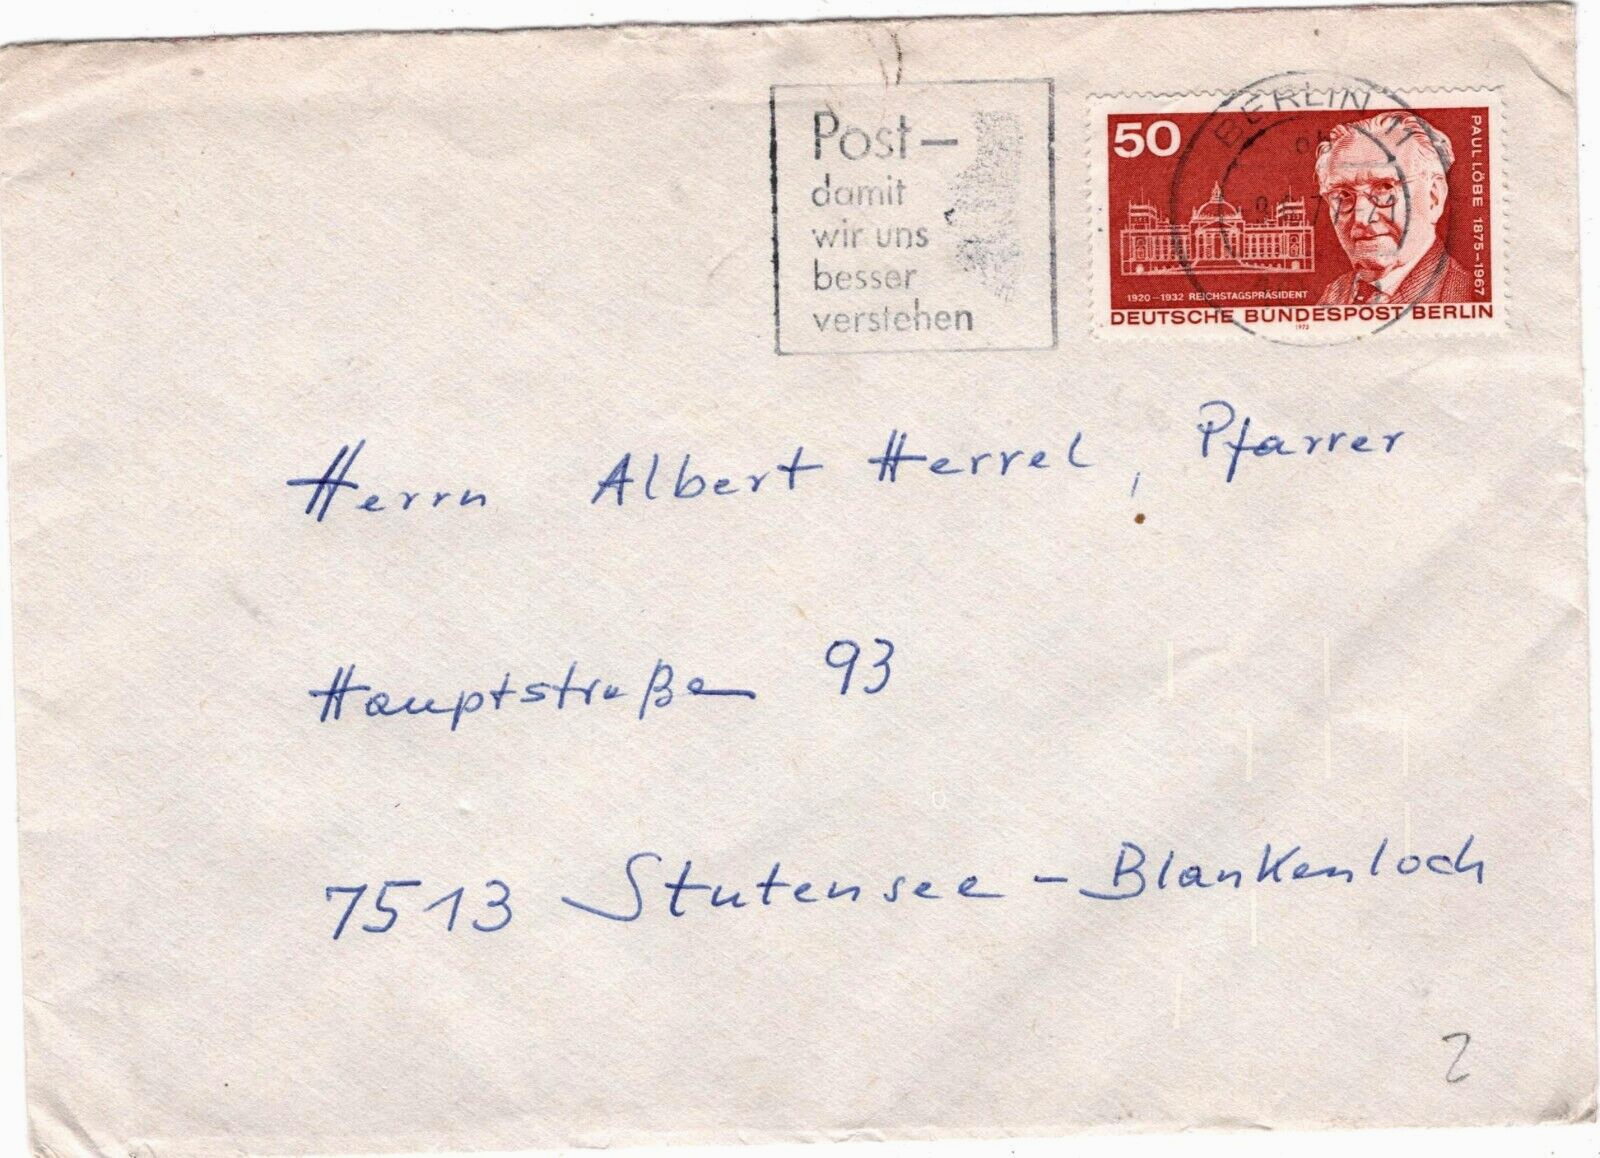 Post-
damit
wir uns
besser
verstehen
BERLIN 11
50
PAUL LÖBE 1875-1967
1920-1932 REICHSTAGSPRÄSIDENT
DEUTSCHE BUNDESPOST BERLIN
Herrn Albert Herrel, Pfarrer
Hauptstraße 93
7513 Stutensee-Blankenloch
2